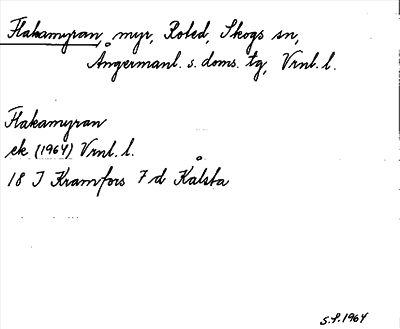 Flakamyran, myr, Roted, Skogs sn,
Ångermanl. s. doms. tg, Vrnl. l.
Flakamyran
ek (1964) Vrnl. l.
18 I Kramfors 7 d Kålsta
S.P. 1964